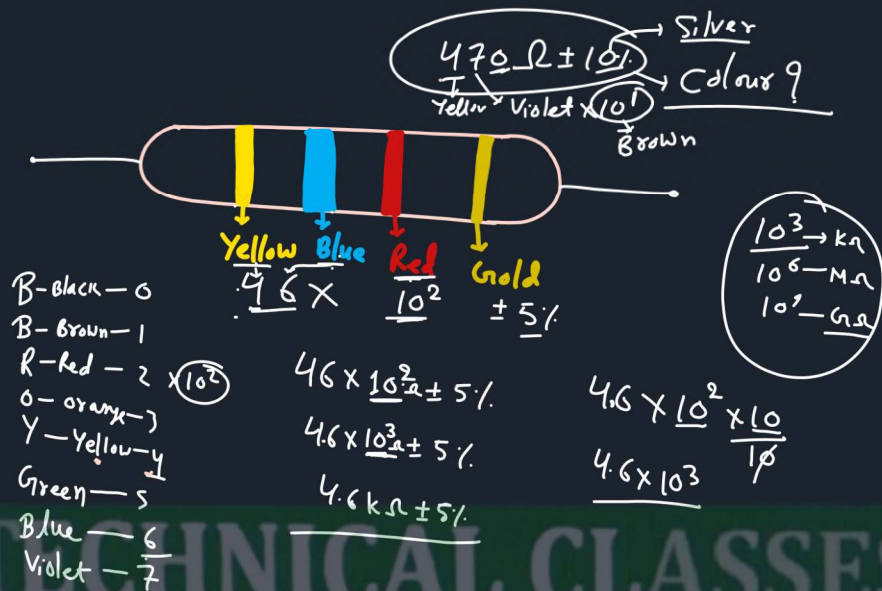 470 Ω ± 10% → Silver
→ Colour ?
Yellow Violet × 10¹
Brown
Yellow Blue Red Gold
46 × 10² ± 5%
10³ → kΩ
10⁶ — MΩ
10⁹ — GΩ
B-Black — 0
B-Brown — 1
R-Red — 2 × 10²
O-orange — 3
Y-Yellow — 4
Green — 5
Blue — 6
Violet — 7
46 × 10² Ω ± 5%
4.6 × 10³ Ω ± 5%
4.6 kΩ ± 5%
4.6 × 10² × 10
10
4.6 × 10³
TECHNICAL CLASSES